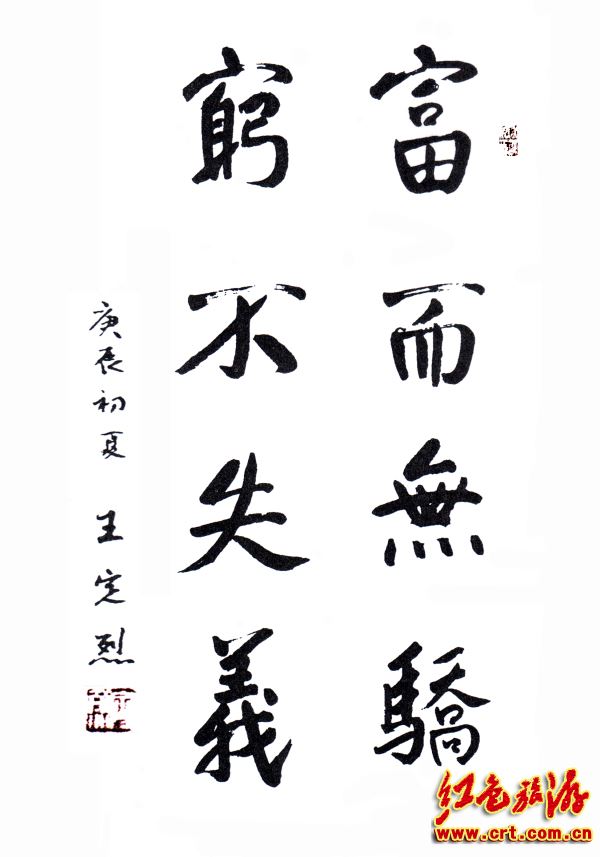 富而無驕
窮不失義
庚辰初夏 王定烈
红色旅游
www.crt.com.cn